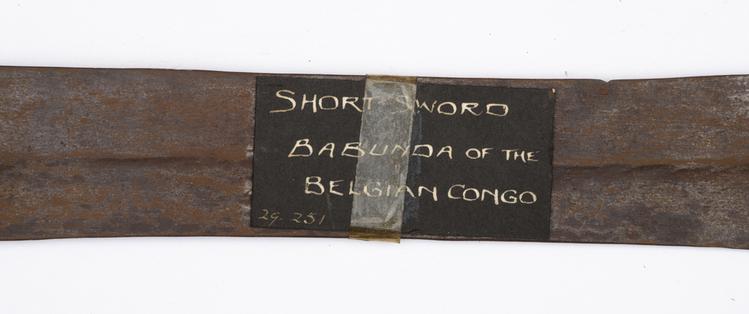 SHORT SWORD
BABUNDA OF THE
BELGIAN CONGO
29. 251